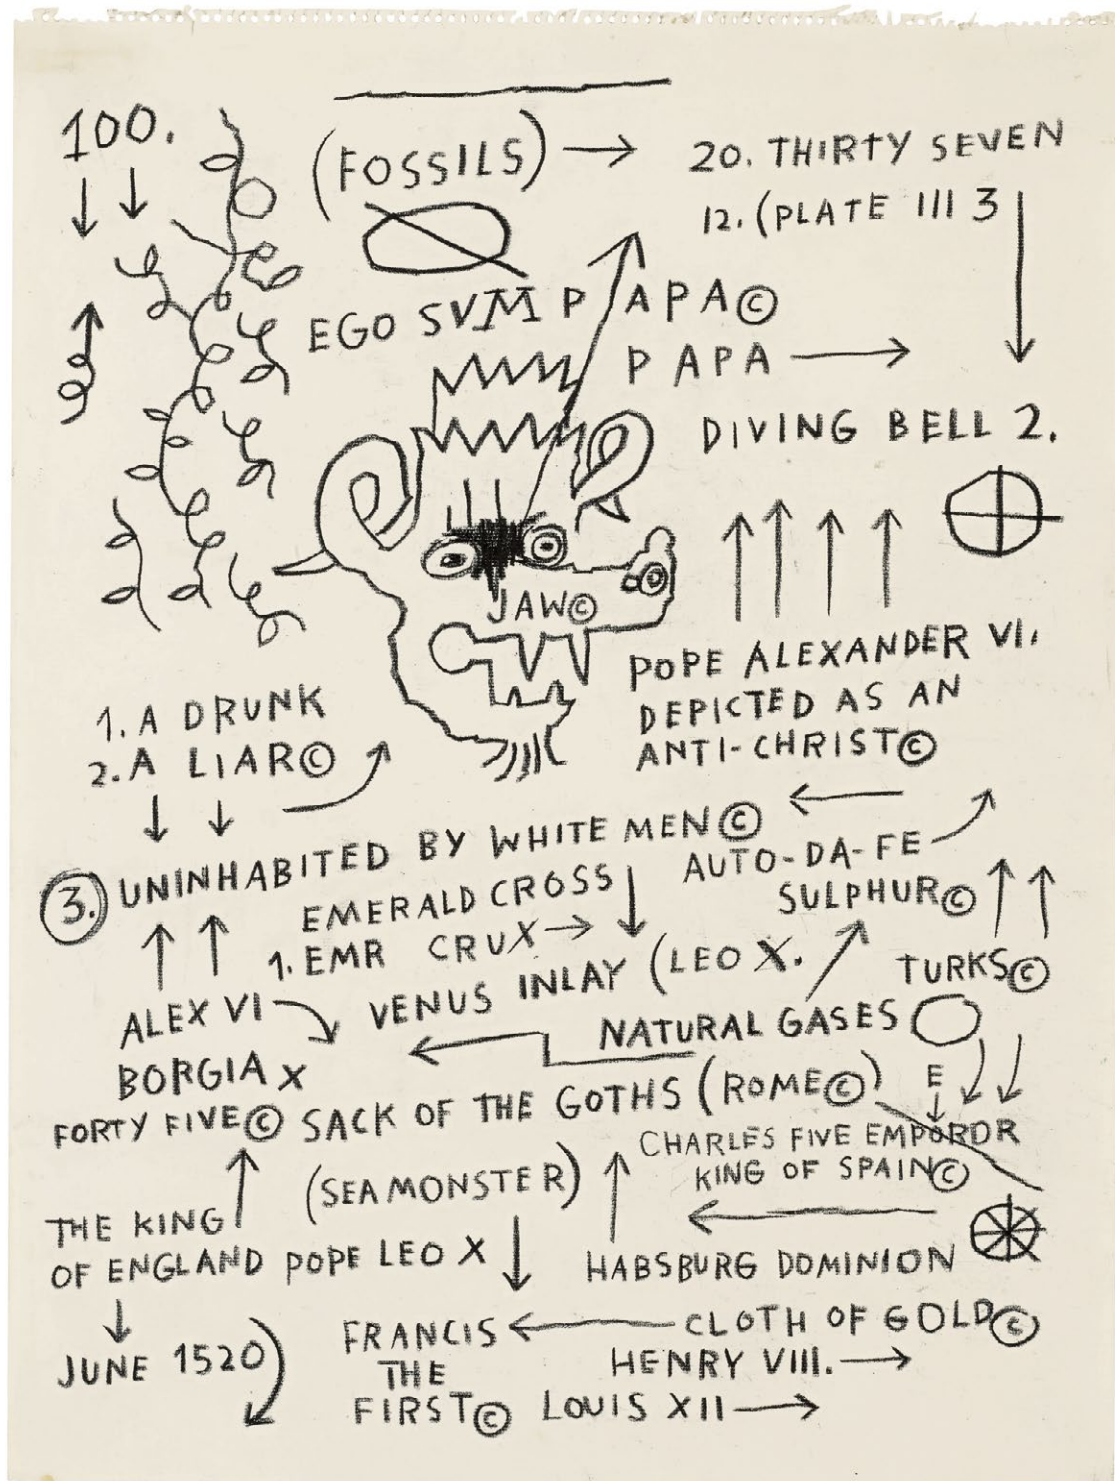 100.
(FOSSILS) → 20. THIRTY SEVEN
12. (PLATE III 3
EGO SVM P APA©
P APA →
DIVING BELL 2.
JAW©
POPE ALEXANDER VI.
DEPICTED AS AN
ANTI-CHRIST©
1. A DRUNK
2. A LIAR©
3. UNINHABITED BY WHITE MEN©
AUTO-DA-FE
SULPHUR©
EMERALD CROSS
1. EMR CRUX →
VENUS INLAY (LEO X.
TURKS©
ALEX VI
NATURAL GASES
BORGIA X
FORTY FIVE© SACK OF THE GOTHS (ROME©)
E
CHARLES FIVE EMPOROR
KING OF SPAIN©
(SEA MONSTER)
THE KING
OF ENGLAND POPE LEO X
HABSBURG DOMINION
JUNE 1520)
FRANCIS ← CLOTH OF GOLD©
THE HENRY VIII. →
FIRST© LOUIS XII →